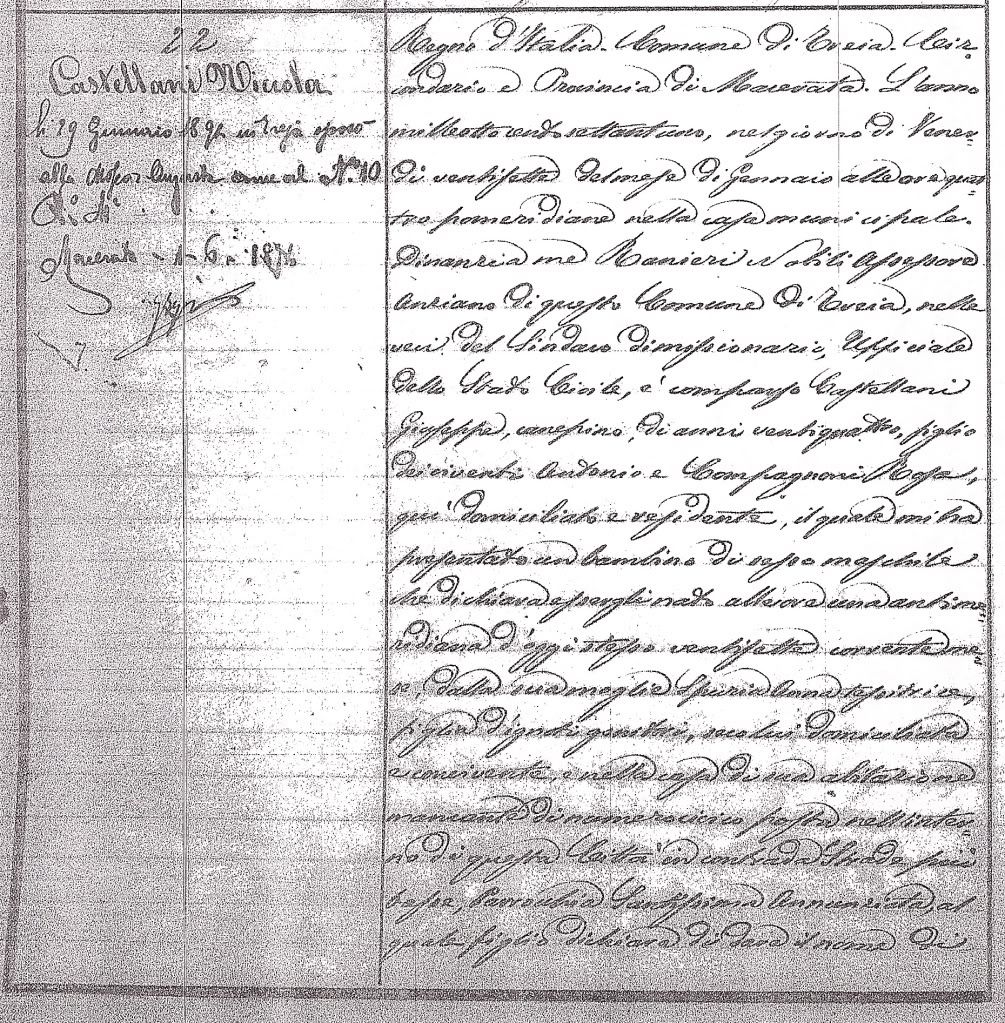 22
Castellani Niccola
li 29 Gennaio 1894 in Treja sposò
N.º 10
Macerata - 1 - 6 - 1876
Regno d'Italia. Comune di Treia. Cir-
condario e Provincia di Macerata. L'anno
milleottocentosettantuno, nel giorno di Vener-
di ventisette del mese di Gennaio alle ore quat-
tro pomeridiane nella casa municipale.
Dinanzi a me Ranieri Nobili Assessore
Anziano di questo Comune di Treia, nelle
veci del Sindaco dimissionario, Ufficiale
dello Stato Civile, è comparso Castellani
Giuseppe, canepino, di anni ventiquattro, figlio
dei viventi Antonio e Compagnoni Rosa,
qui domiciliato e residente, il quale mi ha
presentato un bambino di sesso maschile
che dichiara essergli nato alle ore una antime-
ridiana d'oggi stesso ventisette corrente me-
se, dalla sua moglie Spuria Anna tessitrice,
figlia d'ignoti genitori, seco lui domiciliata
e convivente, e nella casa di sua abitazione
mancante di numero civico posta nell'inter-
no di questa Città in contrada Strade più
basse, Parrocchia Santissima Annunziata, al
quale figlio dichiara di dare il nome di